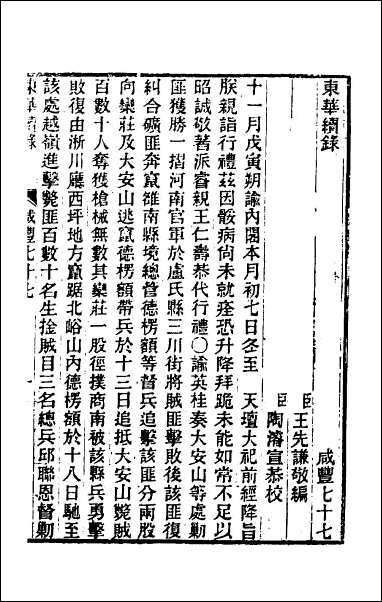 東華續錄
咸豐七十七
臣王先謙敬編
臣陶濬宣恭校
十一月戊寅朔諭內閣本月初七日冬至　天壇大祀前經降旨
朕親詣行禮茲因骽病尙未就痊恐升降拜跪未能如常不足以
昭誠敬著派睿親王仁壽恭代行禮〇諭英桂奏大安山等處勦
匪獲勝一摺河南官軍於盧氏縣三川街將賊匪擊敗後該匪復
糾合礦匪奔竄雒南縣境總督德楞額等督兵追擊該匪分兩股
向欒莊及大安山逃竄德楞額帶兵於十三日追抵大安山斃賊
百數十人奪獲槍械無數其欒莊一股徑撲商南被該縣兵勇擊
敗復由淅川廳西坪地方竄踞北峪山內德楞額於十八日馳至
該處越嶺進擊斃匪百數十名生拴賊目三名總兵邱聯恩督勦
東華續錄
咸豐七十七
一